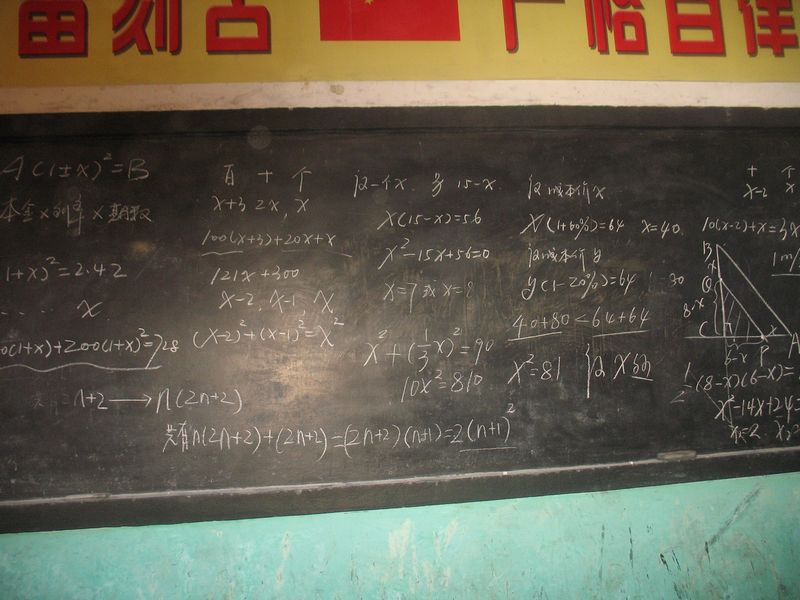 严格自律
A(1±x)²=B
本金×利率×期数
1+x)²=2.42
x
00(1+x)+200(1+x)²=728
n+2→n(2n+2)
共有n(2n+2)+(2n+2)=(2n+2)(n+1)=2(n+1)²
百 十 个
x+3 2x, x
100(x+3)+20x+x
121x+300
x-2, x-1, x
(x-2)²+(x-1)²=x²
设一个x, 另 15-x
x(15-x)=56
x²-15x+56=0
x=7或x=8
x²+(1/3x)²=90
10x²=810
x²=81
设成本价x
x(1+60%)=64 x=40
设成本价y
y(1-20%)=64
40+80<64+64
十 个
x-2 x
10(x-2)+x=3x
1m/
B
x
Q
8-x
C
6-x
P
x
A
1/2(8-x)(6-x)=
x²-14x+24=
x₁=2